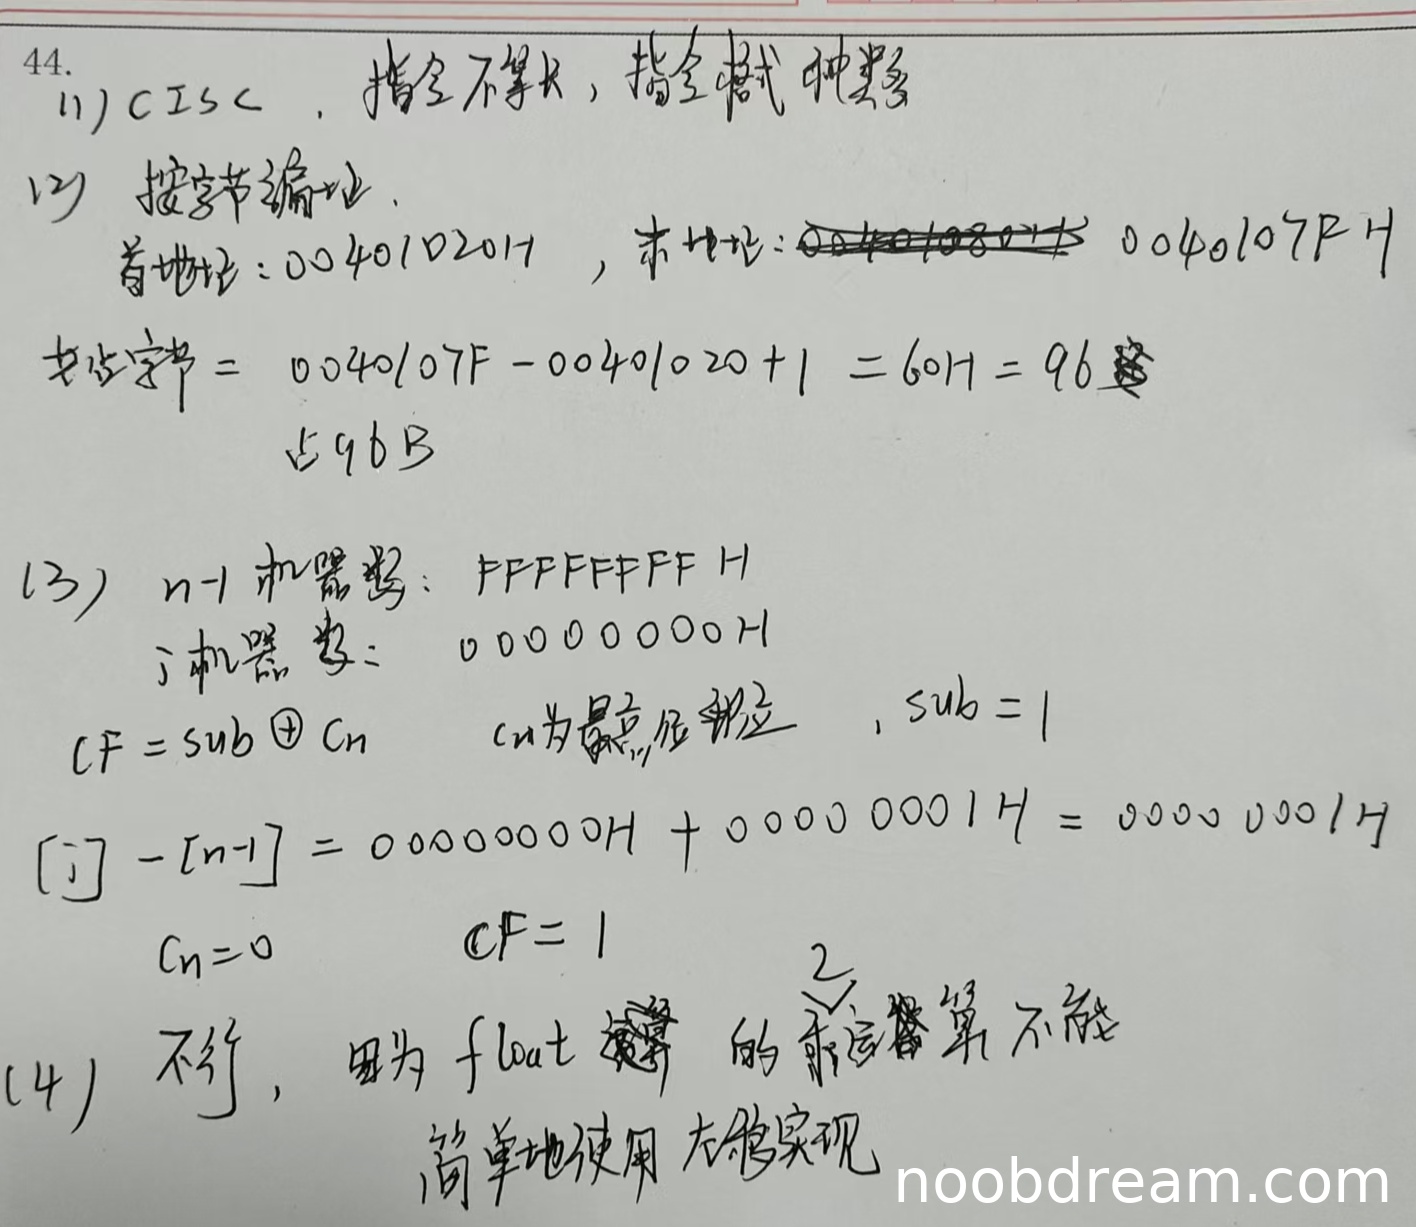 44.
(1) CISC . 指令不等长, 指令格式种类多
(2) 按字节编址.
首地址:00401020H , 末地址: 0040107FH
共占字节 = 0040107F-00401020+1 = 60H = 96
占96B
(3) n-1 机器数: FFFFFFFFH
i机器数: 00000000H
CF = sub ⊕ Cn Cn为最高位进位 , sub = 1
[i] - [n-1] = 00000000H + 00000001H = 00000001H
Cn=0 CF=1
(4) 不行, 因为 float 的乘2运算不能
简单地使用左移实现
noobdream.com